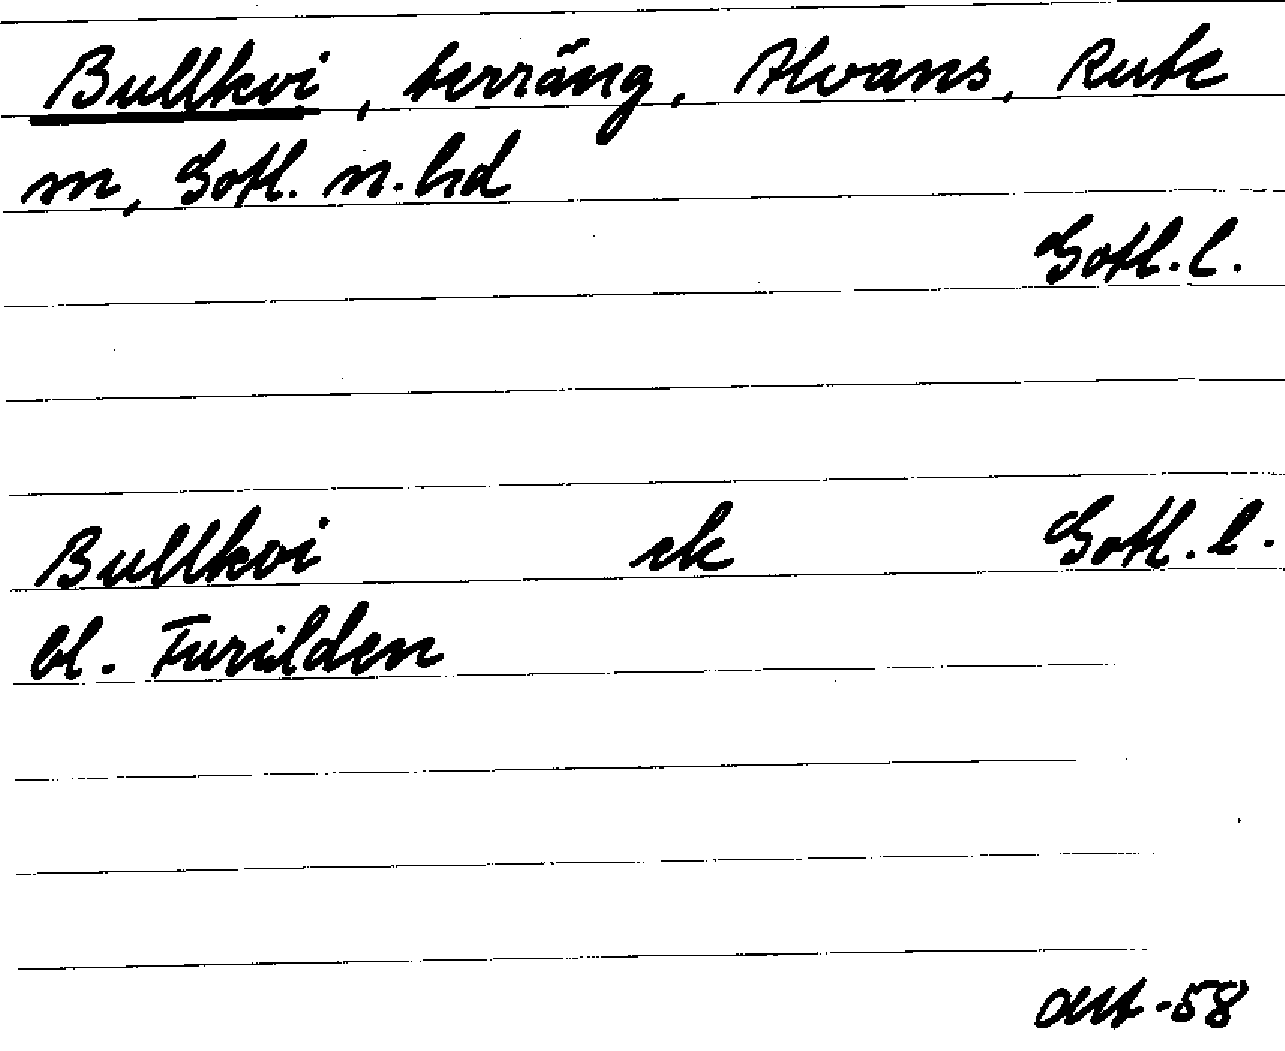 Bullkvi, terräng, Alvans, Rute
sn, Gotl. n. hd
Gotl. l.
Bullkvi ek Gotl. l.
bl. Furilden
okt-58